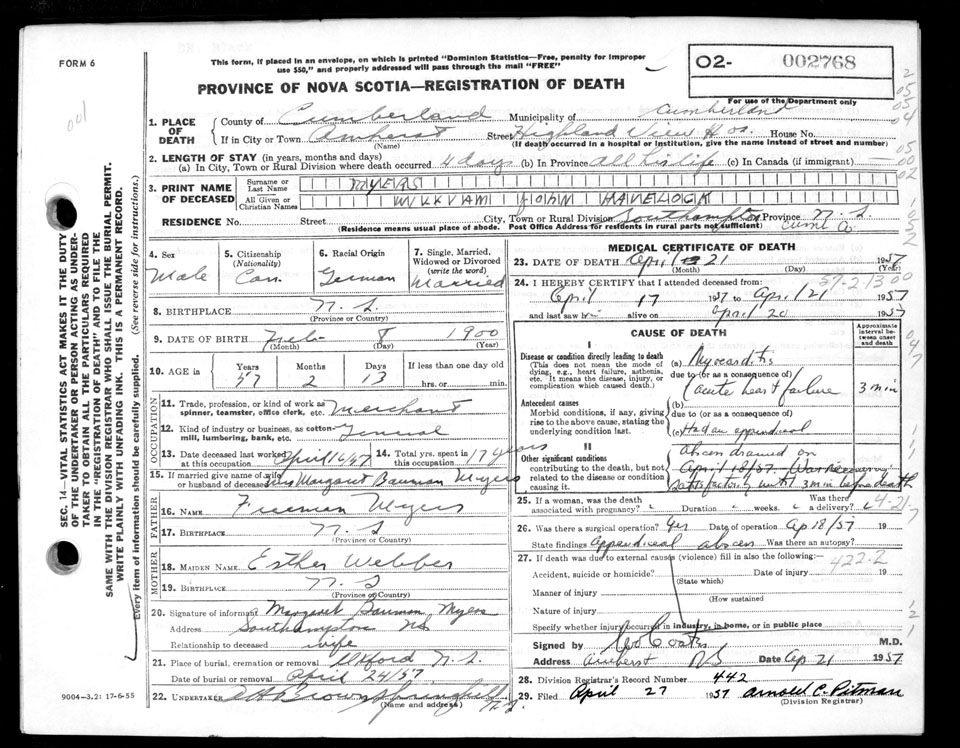 FORM 6
This form, if placed in an envelope, on which is printed "Dominion Statistics—Free, penalty for improper
use $50," and properly addressed will pass through the mail "FREE"
02- 002768
PROVINCE OF NOVA SCOTIA—REGISTRATION OF DEATH
For use of the Department only
001
SEC. 14—VITAL STATISTICS ACT MAKES IT THE DUTY
OF THE UNDERTAKER OR PERSON ACTING AS UNDER-
TAKER TO OBTAIN ALL THE PARTICULARS REQUIRED
IN THE "REGISTRATION OF DEATH" AND TO FILE THE
SAME WITH THE DIVISION REGISTRAR WHO SHALL ISSUE THE BURIAL PERMIT.
WRITE PLAINLY WITH UNFADING INK. THIS IS A PERMANENT RECORD.
Every item of information should be carefully supplied. (See reverse side for instructions.)
1. PLACE OF DEATH
County of Cumberland Municipality of Cumberland
If in City or Town Amherst Street Highland View Hos. House No.
(Name) (If death occurred in a hospital or institution, give the name instead of street and number)
2. LENGTH OF STAY (in years, months and days)
(a) In City, Town or Rural Division where death occurred 4 days (b) In Province All his life (c) In Canada (if immigrant) —
3. PRINT NAME OF DECEASED
Surname or Last Name MYERS
All Given or Christian Names WILLIAM JOHN HAVELOCK
RESIDENCE No. Street City, Town or Rural Division Southampton Province N.S.
(Residence means usual place of abode. Post Office Address for residents in rural parts not sufficient) Cum Co.
4. Sex Male
5. Citizenship (Nationality) Can.
6. Racial Origin German
7. Single, Married, Widowed or Divorced (write the word) Married
8. BIRTHPLACE N.S.
(Province or Country)
9. DATE OF BIRTH Feb 8 1900
(Month) (Day) (Year)
10. AGE in Years 57 Months 2 Days 13 If less than one day old
hrs. or min.
OCCUPATION
11. Trade, profession, or kind of work as spinner, teamster, office clerk, etc. Merchant
12. Kind of industry or business, as cotton-mill, lumbering, bank, etc. General
13. Date deceased last worked at this occupation April 16/57 14. Total yrs. spent in this occupation 17 years
15. If married give name of wife or husband of deceased Mrs Margaret Bauman Myers
FATHER
16. NAME Freeman Myers
17. BIRTHPLACE N.S
(Province or Country)
MOTHER
18. MAIDEN NAME Esther Webber
19. BIRTHPLACE N.S
(Province or Country)
20. Signature of informant Margaret Bauman Myers
Address Southampton NS
Relationship to deceased wife
21. Place of burial, cremation or removal Oxford N.S.
Date of burial or removal April 24/57
22. UNDERTAKER Brown Springhill N.S.
(Name and address)
9004-3.2: 17-6-55
MEDICAL CERTIFICATE OF DEATH
23. DATE OF DEATH April 21 1957
(Month) (Day) (Year)
24. I HEREBY CERTIFY that I attended deceased from: 57-2-13
April 17 1957 to April 21 1957
and last saw h alive on April 20 1957
CAUSE OF DEATH
Approximate interval between onset and death
I
Disease or condition directly leading to death (a) Myocarditis
(This does not mean the mode of dying, e.g., heart failure, asthenia, etc. It means the disease, injury, or complication which caused death.)
due to (or as a consequence of)
Antecedent causes
Morbid conditions, if any, giving rise to the above cause, stating the underlying condition last.
(b) acute heart failure 3 min
due to (or as a consequence of)
(c) Had an appendiceal
II
Other significant conditions
contributing to the death, but not related to the disease or condition causing it.
abscess drained on
April 18/57. Was recovering
satisfactorily until 3 min before death
25. If a woman, was the death associated with pregnancy? Duration weeks. Was there a delivery?
4-21
26. Was there a surgical operation? Yes Date of operation Ap 18/57 19
State findings Appendiceal abscess Was there an autopsy?
27. If death was due to external causes (violence) fill in also the following:— 422.2
Accident, suicide or homicide? Date of injury 19
(State which)
Manner of injury
(How sustained
Nature of injury
Specify whether injury occurred in industry, in home, or in public place
Signed by M.D.
Address Amherst NS Date Ap 21 1957
28. Division Registrar's Record Number 442
29. Filed April 27 1957 Arnold C. Pitman
(Division Registrar)